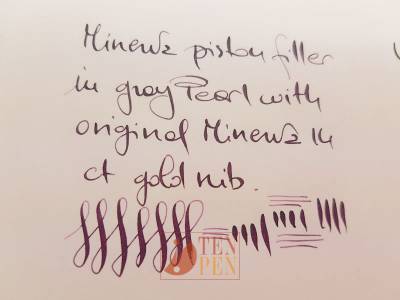 Minerva piston filler
in gray Pearl with
original Minerva 14
ct gold nib.
TEN
PEN